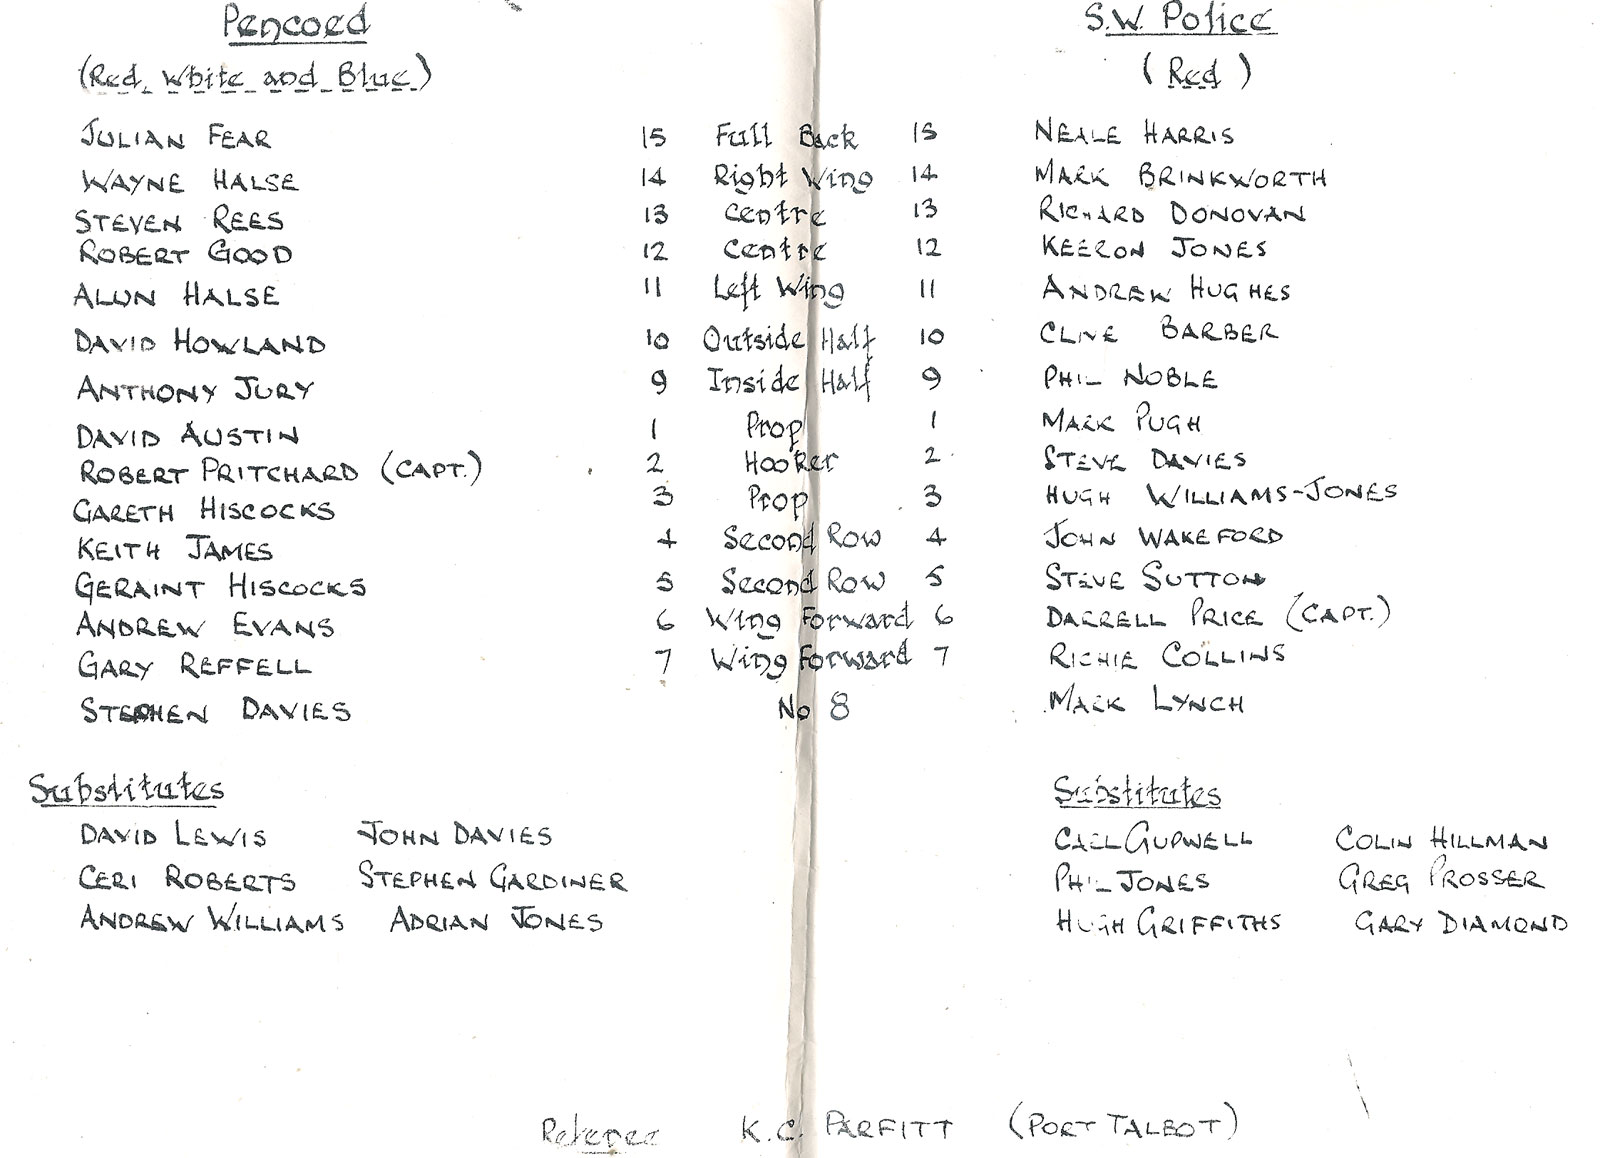 Pencoed S.W. Police
(Red, White and Blue) (Red)
JULIAN FEAR 15 Full Back 15 NEALE HARRIS
WAYNE HALSE 14 Right Wing 14 MARK BRINKWORTH
STEVEN REES 13 Centre 13 RICHARD DONOVAN
ROBERT GOOD 12 Centre 12 KEERON JONES
ALUN HALSE 11 Left Wing 11 ANDREW HUGHES
DAVID HOWLAND 10 Outside Half 10 CLIVE BARBER
ANTHONY JURY 9 Inside Half 9 PHIL NOBLE
DAVID AUSTIN 1 Prop 1 MARK PUGH
ROBERT PRITCHARD (CAPT.) 2 Hooker 2 STEVE DAVIES
GARETH HISCOCKS 3 Prop 3 HUGH WILLIAMS-JONES
KEITH JAMES 4 Second Row 4 JOHN WAKEFORD
GERAINT HISCOCKS 5 Second Row 5 STEVE SUTTON
ANDREW EVANS 6 Wing Forward 6 DARRELL PRICE (CAPT.)
GARY REFFELL 7 Wing Forward 7 RICHIE COLLINS
STEPHEN DAVIES No 8 MARK LYNCH
Substitutes Substitutes
DAVID LEWIS JOHN DAVIES CARL GUPWELL COLIN HILLMAN
CERI ROBERTS STEPHEN GARDINER PHIL JONES GREG PROSSER
ANDREW WILLIAMS ADRIAN JONES HUGH GRIFFITHS GARY DIAMOND
Referee K.C. PARFITT (PORT TALBOT)